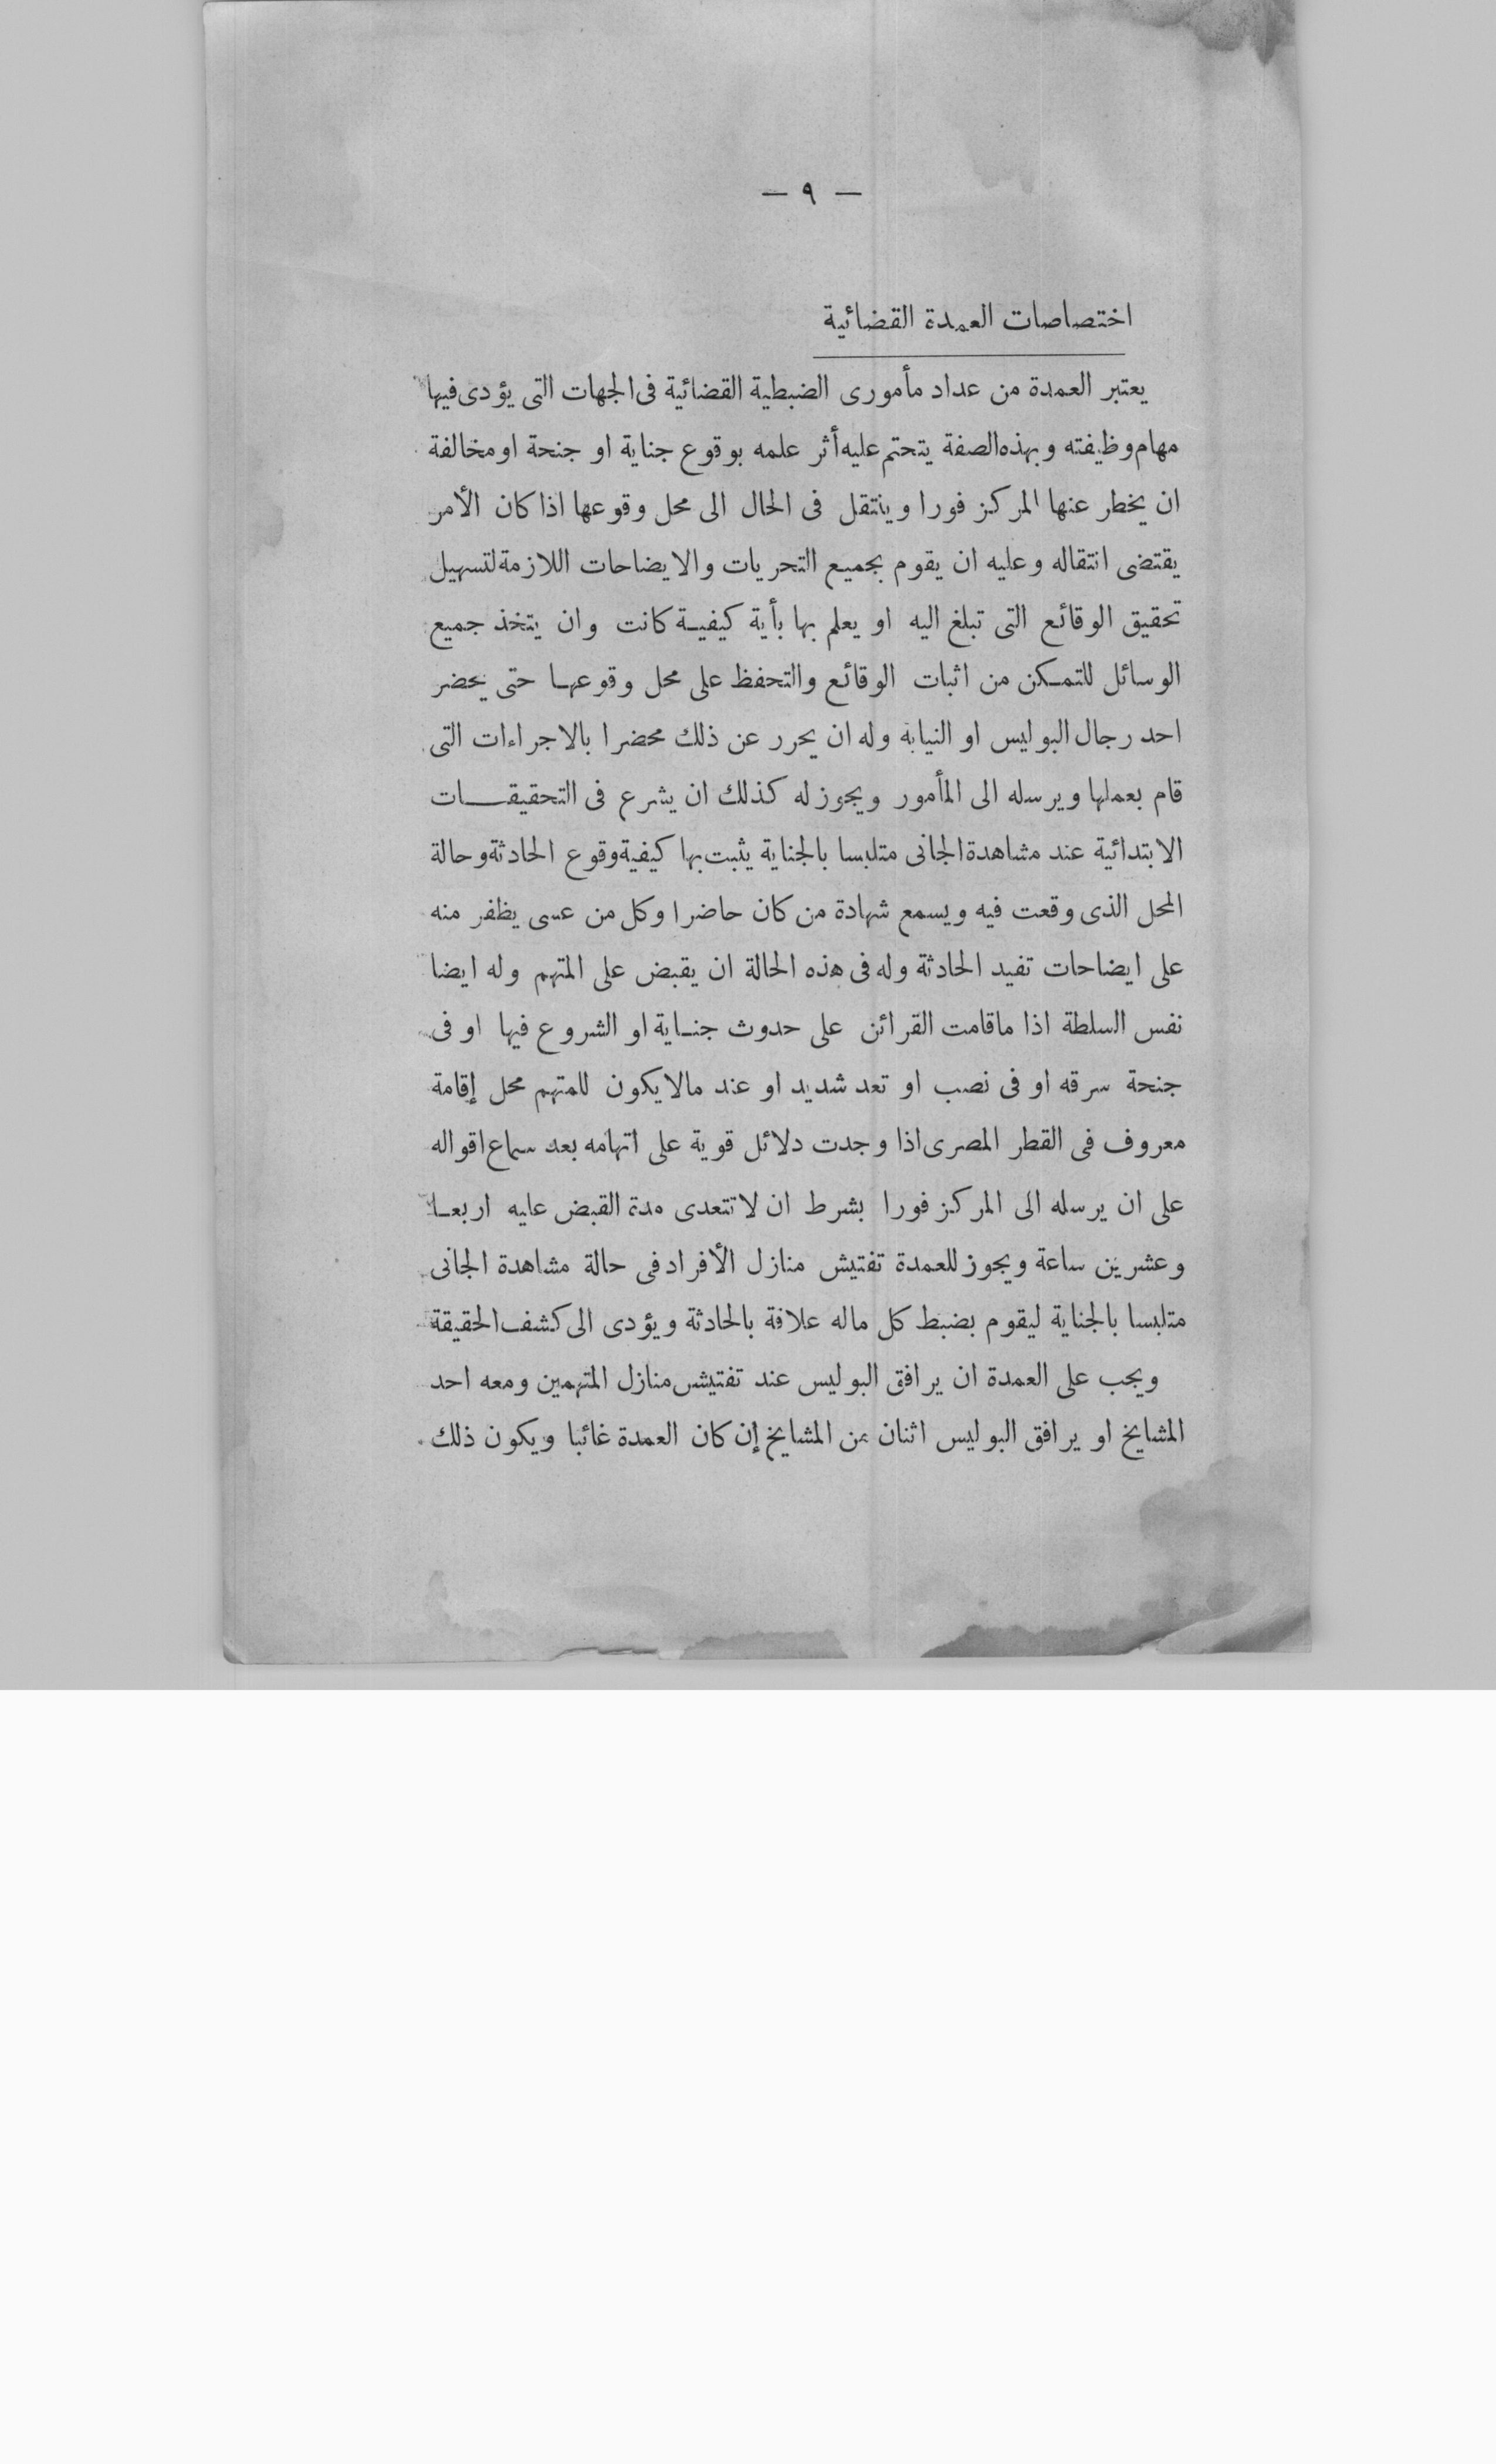 — ٩ —
اختصاصات العمدة القضائية
يعتبر العمدة من عداد مأمورى الضبطية القضائية فى الجهات التى يؤدى فيها
مهام وظيفته وبهذه الصفة يتحتم عليه أثر علمه بوقوع جناية او جنحة او مخالفة
ان يخطر عنها المركز فورا وينتقل فى الحال الى محل وقوعها اذا كان الأمر
يقتضى انتقاله وعليه ان يقوم بجميع التحريات والايضاحات اللازمة لتسهيل
تحقيق الوقائع التى تبلغ اليه او يعلم بها بأية كيفيـة كانت وان يتخذ جميع
الوسائل للتمـكن من اثبات الوقائع والتحفظ على محل وقوعهـا حتى يحضر
احد رجال البوليس او النيابة وله ان يحرر عن ذلك محضرا بالاجراءات التى
قام بعملها ويرسله الى المأمور ويجوز له كذلك ان يشرع فى التحقيقـــات
الابتدائية عند مشاهدة الجانى متلبسا بالجناية يثبت بها كيفية وقوع الحادثة وحالة
المحل الذى وقعت فيه ويسمع شهادة من كان حاضرا وكل من عسى يظفر منه
على ايضاحات تفيد الحادثة وله فى هذه الحالة ان يقبض على المتهم وله ايضا
نفس السلطة اذا ماقامت القرائن على حدوث جنـاية او الشروع فيها او فى
جنحة سرقه او فى نصب او تعد شديد او عند مالا يكون للمتهم محل إقامة
معروف فى القطر المصرى اذا وجدت دلائل قوية على اتهامه بعد سماع اقواله
على ان يرسله الى المركز فورا بشرط ان لا تتعدى مدة القبض عليه اربعـا
وعشرين ساعة ويجوز للعمدة تفتيش منازل الأفراد فى حالة مشاهدة الجانى
متلبسا بالجناية ليقوم بضبط كل ماله علاقة بالحادثة ويؤدى الى كشف الحقيقة
ويجب على العمدة ان يرافق البوليس عند تفتيش منازل المتهمين ومعه احد
المشايخ او يرافق البوليس اثنان من المشايخ إن كان العمدة غائبا ويكون ذلك